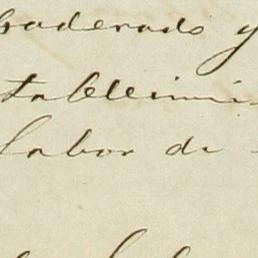 poderado y
tablecimi
labor de